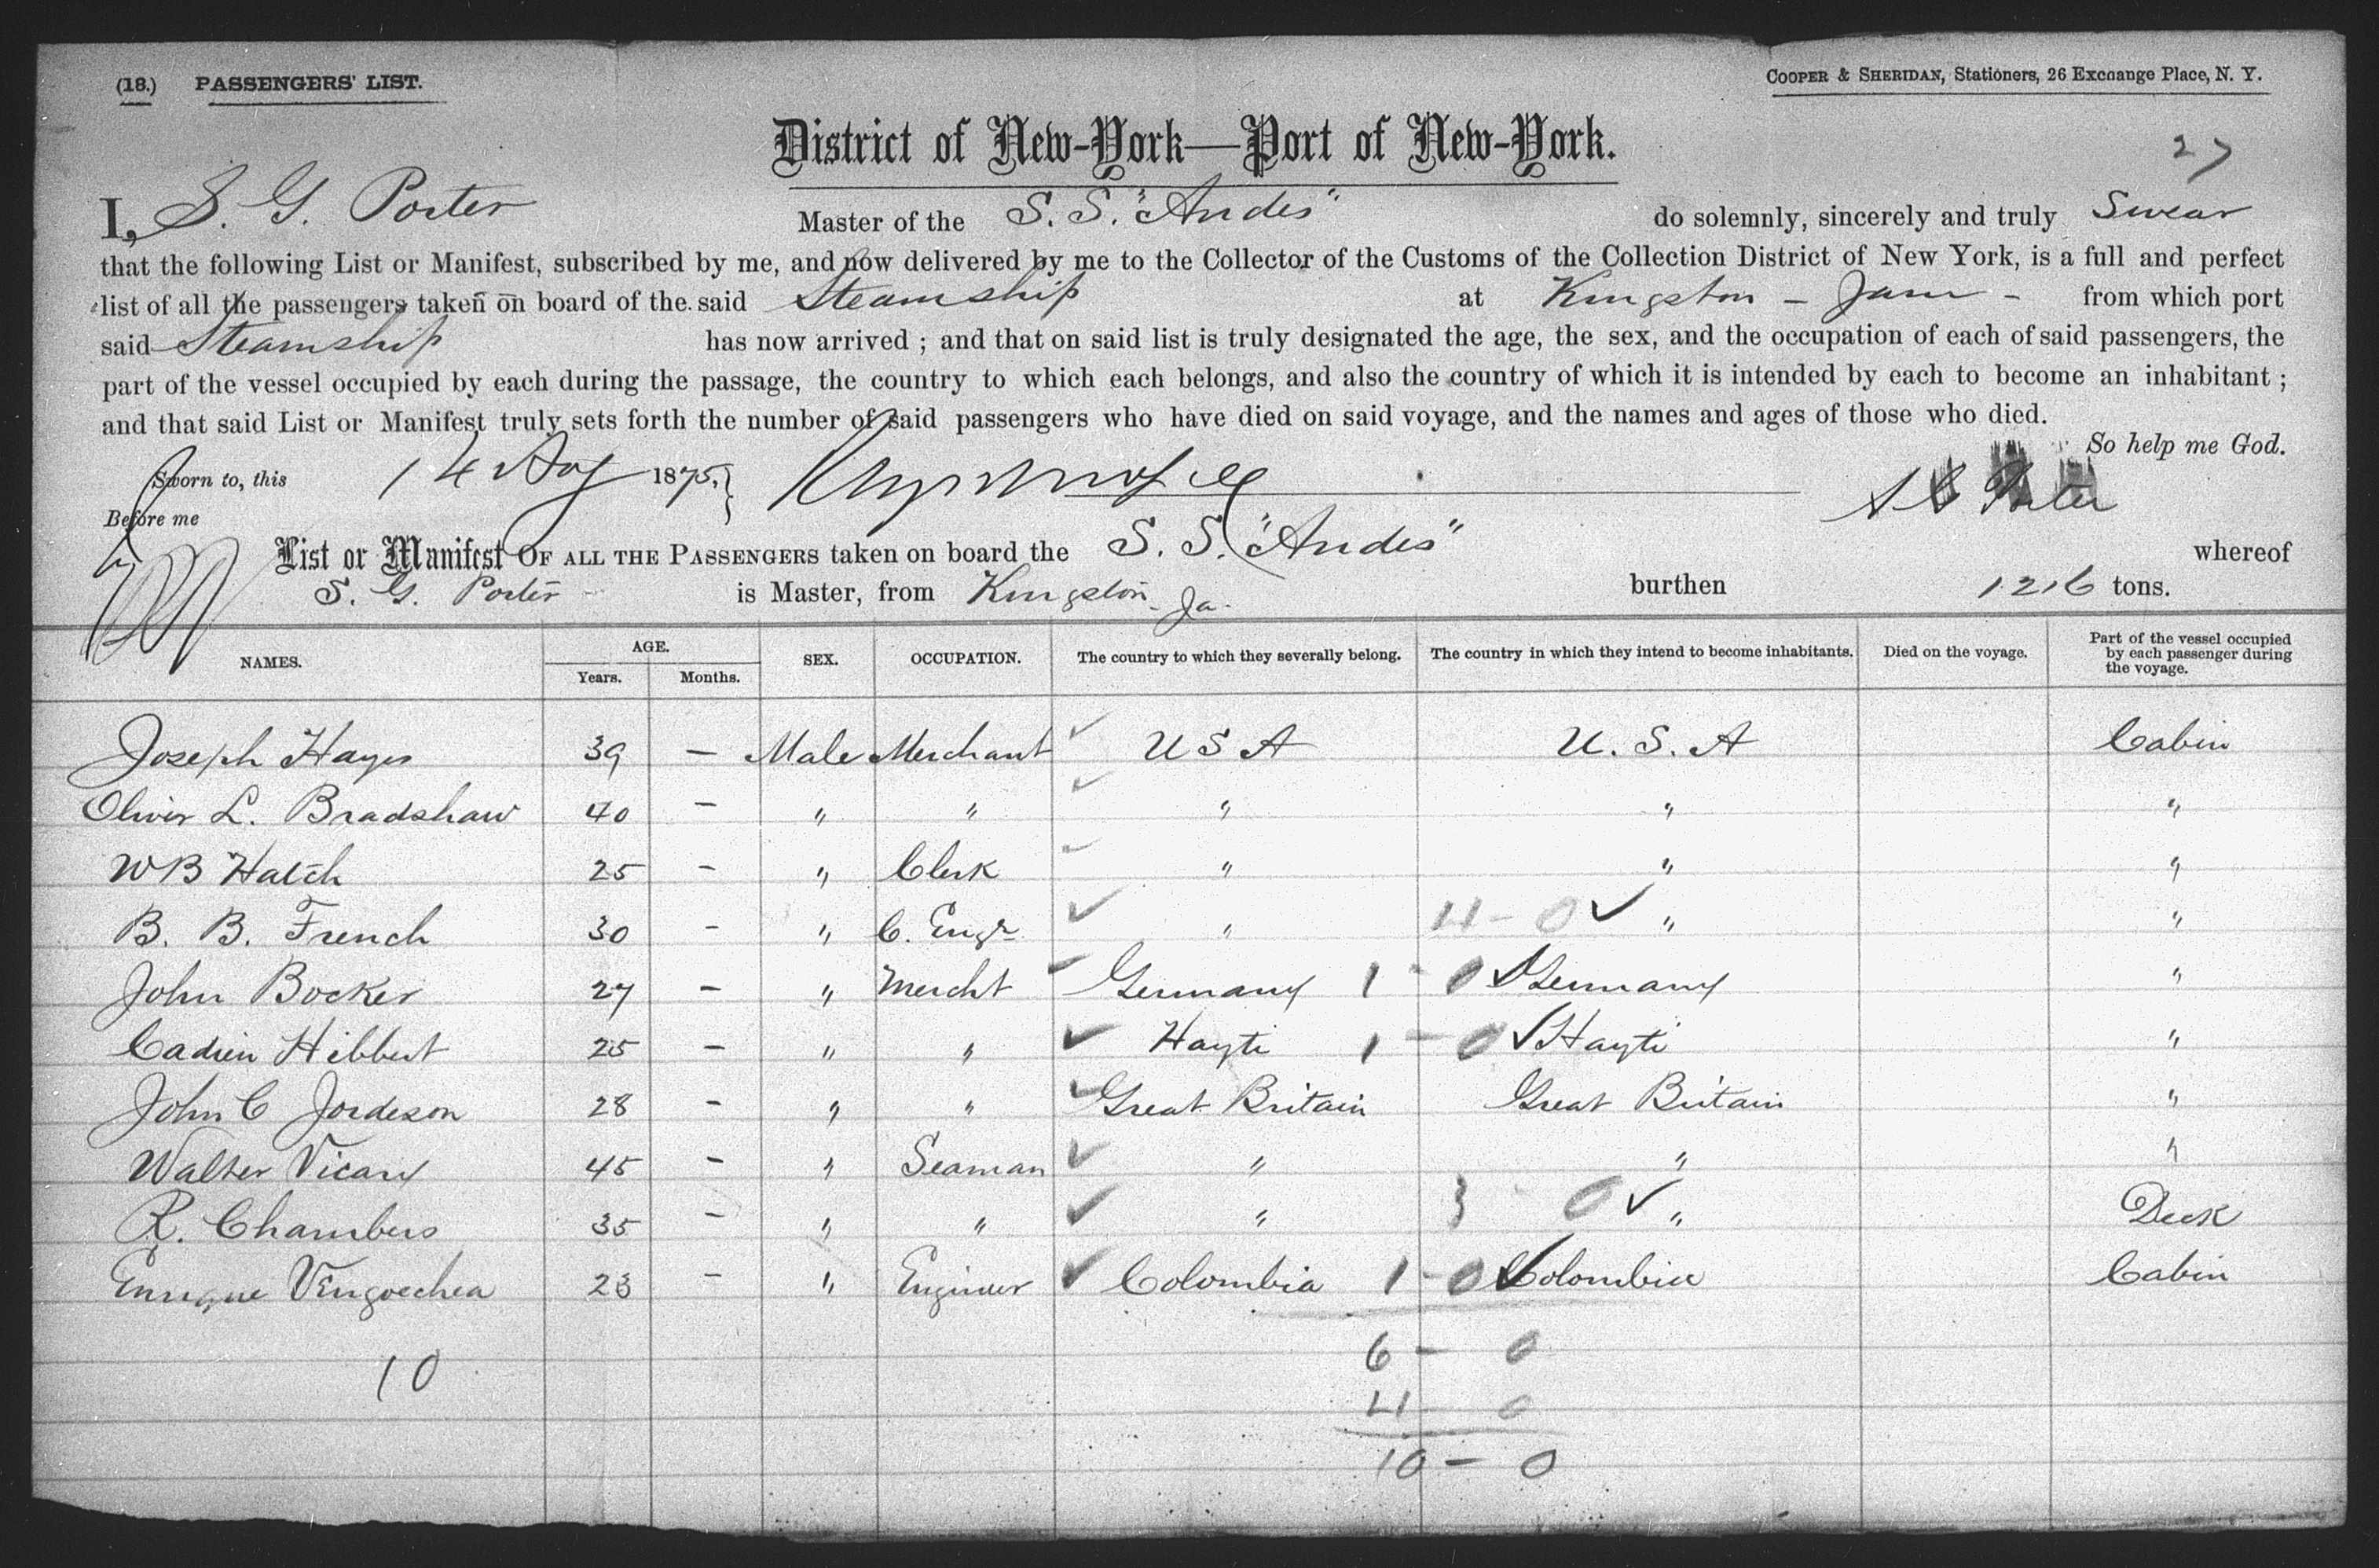 (18.) PASSENGERS' LIST. COOPER & SHERIDAN, Stationers, 26 Exchange Place, N. Y.
District of New-York—Port of New-York.
27
I, S. G. Porter Master of the S. S. "Andes" do solemnly, sincerely and truly Swear
that the following List or Manifest, subscribed by me, and now delivered by me to the Collector of the Customs of the Collection District of New York, is a full and perfect
list of all the passengers taken on board of the said Steamship at Kingston - Jam - from which port
said Steamship has now arrived ; and that on said list is truly designated the age, the sex, and the occupation of each of said passengers, the
part of the vessel occupied by each during the passage, the country to which each belongs, and also the country of which it is intended by each to become an inhabitant ;
and that said List or Manifest truly sets forth the number of said passengers who have died on said voyage, and the names and ages of those who died.
So help me God.
Sworn to, this 14 Aug 1875, S G Porter
Before me
List or Manifest OF ALL THE PASSENGERS taken on board the S. S. "Andes" whereof
S. G. Porter is Master, from Kingston Ja. burthen 1216 tons.
NAMES. AGE. Years. Months. SEX. OCCUPATION. The country to which they severally belong. The country in which they intend to become inhabitants. Died on the voyage. Part of the vessel occupied by each passenger during the voyage.
Joseph Hayes 39 — Male Merchant ✓ U S A U. S. A Cabin
Oliver L. Bradshaw 40 — " " ✓ " " "
W B Hatch 25 - " Clerk ✓ " " "
B. B. French 30 - " C. Engr ✓ " 4 - 0 ✓ " "
John Bocker 27 — " Mercht ✓ Germany 1 - 0 ✓ Germany "
Cadien Hibbert 25 — " " ✓ Hayti 1 - 0 ✓ Hayti "
John C Jordeson 28 - " " ✓ Great Britain Great Britain "
Walter Vicary 45 - " Seaman ✓ " " "
R. Chambers 35 - " " ✓ " 3 0 ✓ " Deck
Enrique Vengoechea 23 - " Engineer ✓ Colombia 1 - 0 ✓ Colombia Cabin
6 - 0
10
4 0
10 - 0